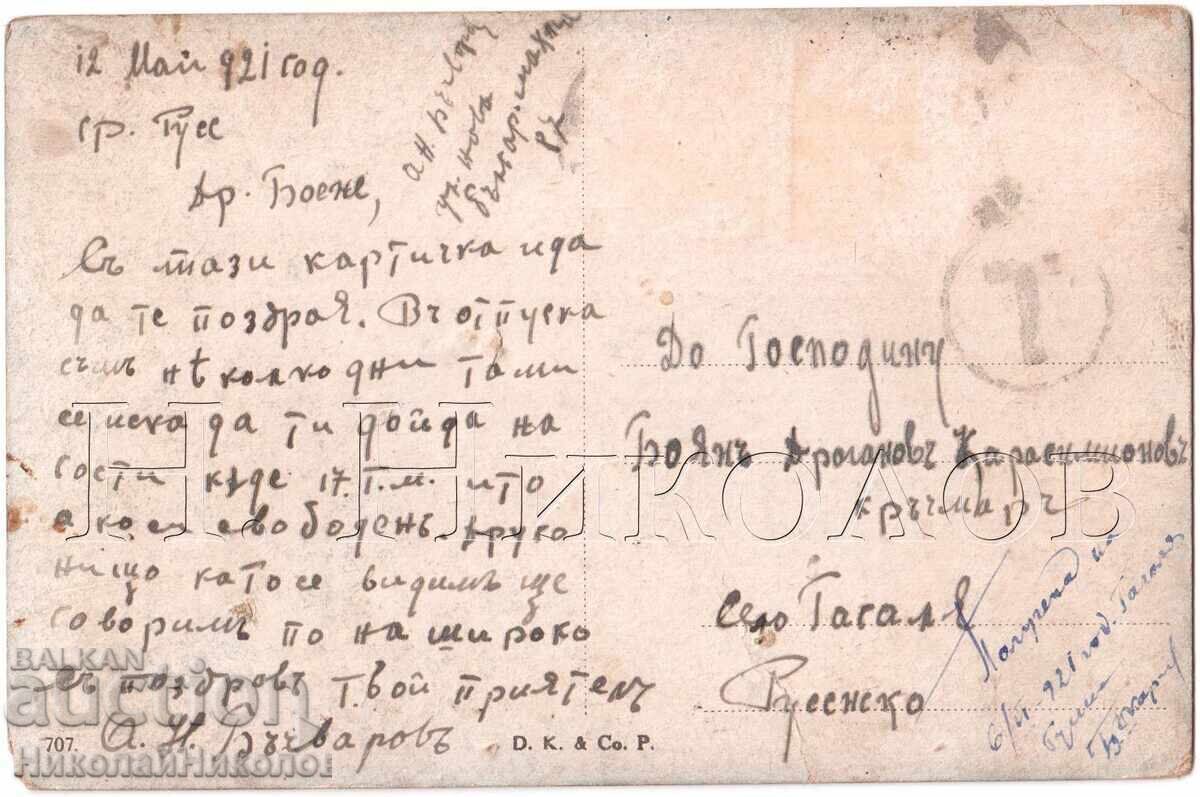 12 Май 921 год.
гр. Русе
Др. Боене,
Съ тази картичка ида
да те поздравя. Въ отпуска
съмъ нѣколко дни та ми
се иска да ти дойда на
гости къде 17. т.м. ито
ако си свободенъ. друго
нищо като се видимъ ще
говоримъ по на широко
Съ поздровъ твой приятель
А. Н. Бъчваровъ
ул. Нова
До Господину
Боянъ Драгановъ Карасимионовъ
кръчмаръ
Село Гагаля
Русенско
Получена на
6/II 921 год. Гагаля
707.
D. K. & Co. P.
Н. НИКОЛОВ
BALKAN
auction
НиколайНиколов
T